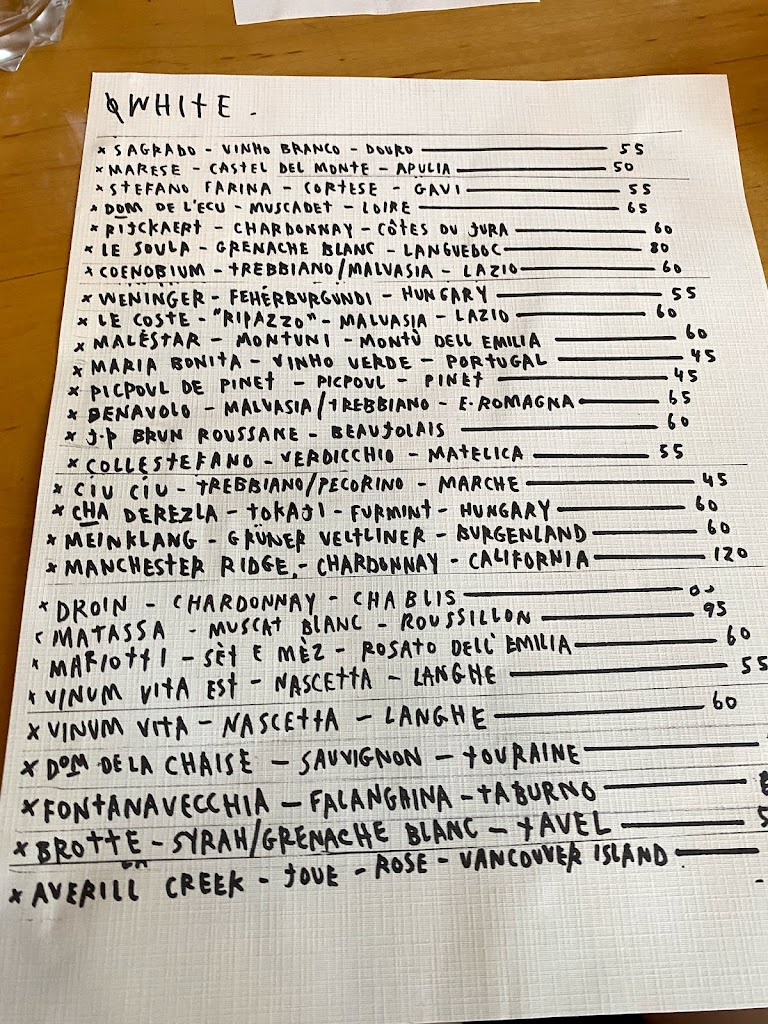 WHITE.
x SAGRADO - VINHO BRANCO - DOURO 55
x MARESE - CASTEL DEL MONTE - APULIA 50
x STEFANO FARINA - CORTESE - GAVI 55
x DOM DE L'ECU - MUSCADET - LOIRE 65
x RIJCKAERT - CHARDONNAY - CÔTES DU JURA 60
x LE SOULA - GRENACHE BLANC - LANGUEDOC 80
x COENOBIUM - TREBBIANO/MALVASIA - LAZIO 60
x WENINGER - FEHÉRBURGUNDI - HUNGARY 55
x LE COSTE - "RIPAZZO" - MALVASIA - LAZIO 60
x MALÈSTAR - MONTUNI - MONTÙ DELL EMILIA 60
x MARIA BONITA - VINHO VERDE - PORTUGAL 45
x PICPOUL DE PINET - PICPOUL - PINET 45
x DENAVOLO - MALVASIA/TREBBIANO - E.ROMAGNA 65
x J.P BRUN ROUSSANE - BEAUJOLAIS 60
x COLLESTEFANO - VERDICCHIO - MATELICA 55
x CIU CIU - TREBBIANO/PECORINO - MARCHE 45
x CHA DEREZLA - TOKAJI - FURMINT - HUNGARY 60
x MEINKLANG - GRÜNER VELTLINER - BURGENLAND 60
x MANCHESTER RIDGE - CHARDONNAY - CALIFORNIA 120
x DROIN - CHARDONNAY - CHABLIS
x MATASSA - MUSCAT BLANC - ROUSSILLON 95
x MARIOTTI - SÈT E MÈZ - ROSATO DELL'EMILIA 60
x VINUM VITA EST - NASCETTA - LANGHE 55
x VINUM VITA - NASCETTA - LANGHE 60
x DOM DE LA CHAISE - SAUVIGNON - TOURAINE
x FONTANAVECCHIA - FALANGHINA - TABURNO
x BROTTE - SYRAH/GRENACHE BLANC - TAVEL
x AVERILL CREEK - JOUE - ROSE - VANCOUVER ISLAND